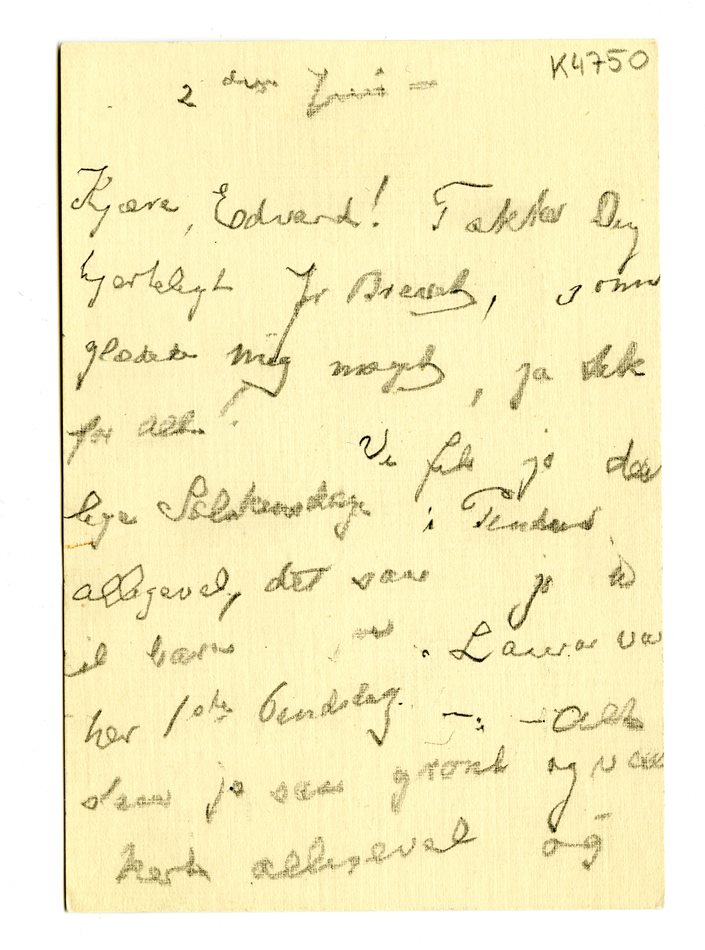 K4750
2 den Juni =
Kjære, Edvard! Takker Dig
hjerteligt for Brevet, som
glædede mig meget, ja tak
for alt!
Vi fik jo dei
lige Solskinsdage i Pindsen
allegevel, det var jo
. Laura var
her 1ste Pindsdag. -: - Alt
staar jo saa grønt og
kert allegevel og